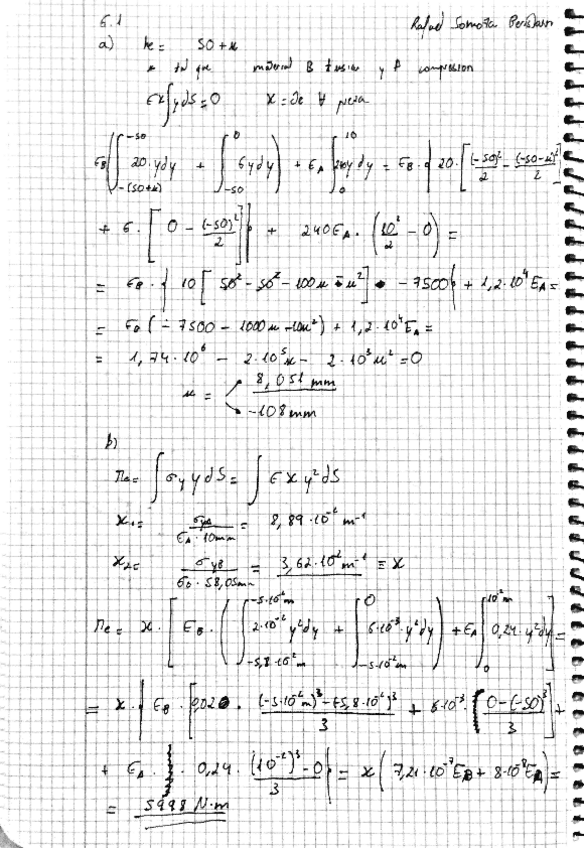 6.1
a) he = 50 + u
u tal que material B tension y A compresion
Ex ∫ y dS = 0 x = de ∀ pieza
E_B ( ∫_{-(50+u)}^{-50} 20·y dy + ∫_{-50}^{0} 6y dy ) + E_A ∫_0^{10} 240 y dy = E_B · { 20 · [ (-50)²/2 - (-50-u)²/2 ]
+ 6 · [ 0 - (-50)²/2 ] } + 240 E_A · ( 10²/2 - 0 ) =
= E_B · { 10 [ 50² - 50² - 100u - u² ] - 7500 } + 1,2·10⁴ E_A =
= E_B ( - 7500 - 1000u - 10u² ) + 1,2·10⁴ E_A =
= 1,74·10⁶ - 2·10⁵u - 2·10³u² = 0
u = 8,051 mm
-108 mm
b)
Πe = ∫ σy y dS = ∫ E x y² dS
x₁ = σyA / (E_A · 10mm) = 8,89·10⁻² m⁻¹
x₂ = σyB / (E_B · 58,05mm) = 3,62·10⁻² m⁻¹ ≡ x
Πe = x · [ E_B · ( ∫_{-5,8·10⁻²m}^{-5·10⁻²m} 2·10⁻² y² dy + ∫_{-5·10⁻²m}^{0} 6·10⁻³ · y² dy ) + E_A ∫_0^{10⁻²m} 0,24 · y² dy ] =
= x · { E_B · [ 0,020 · ((-5·10⁻²m)³ - (-5,8·10⁻²)³)/3 + 6·10⁻³ · [ (0 - (-50)³)/3 ] +
+ E_A · 0,24 · ((10⁻²)³ - 0)/3 } = x ( 7,21·10⁻⁷ E_B + 8·10⁻⁸ E_A ) =
= 5998 N·m